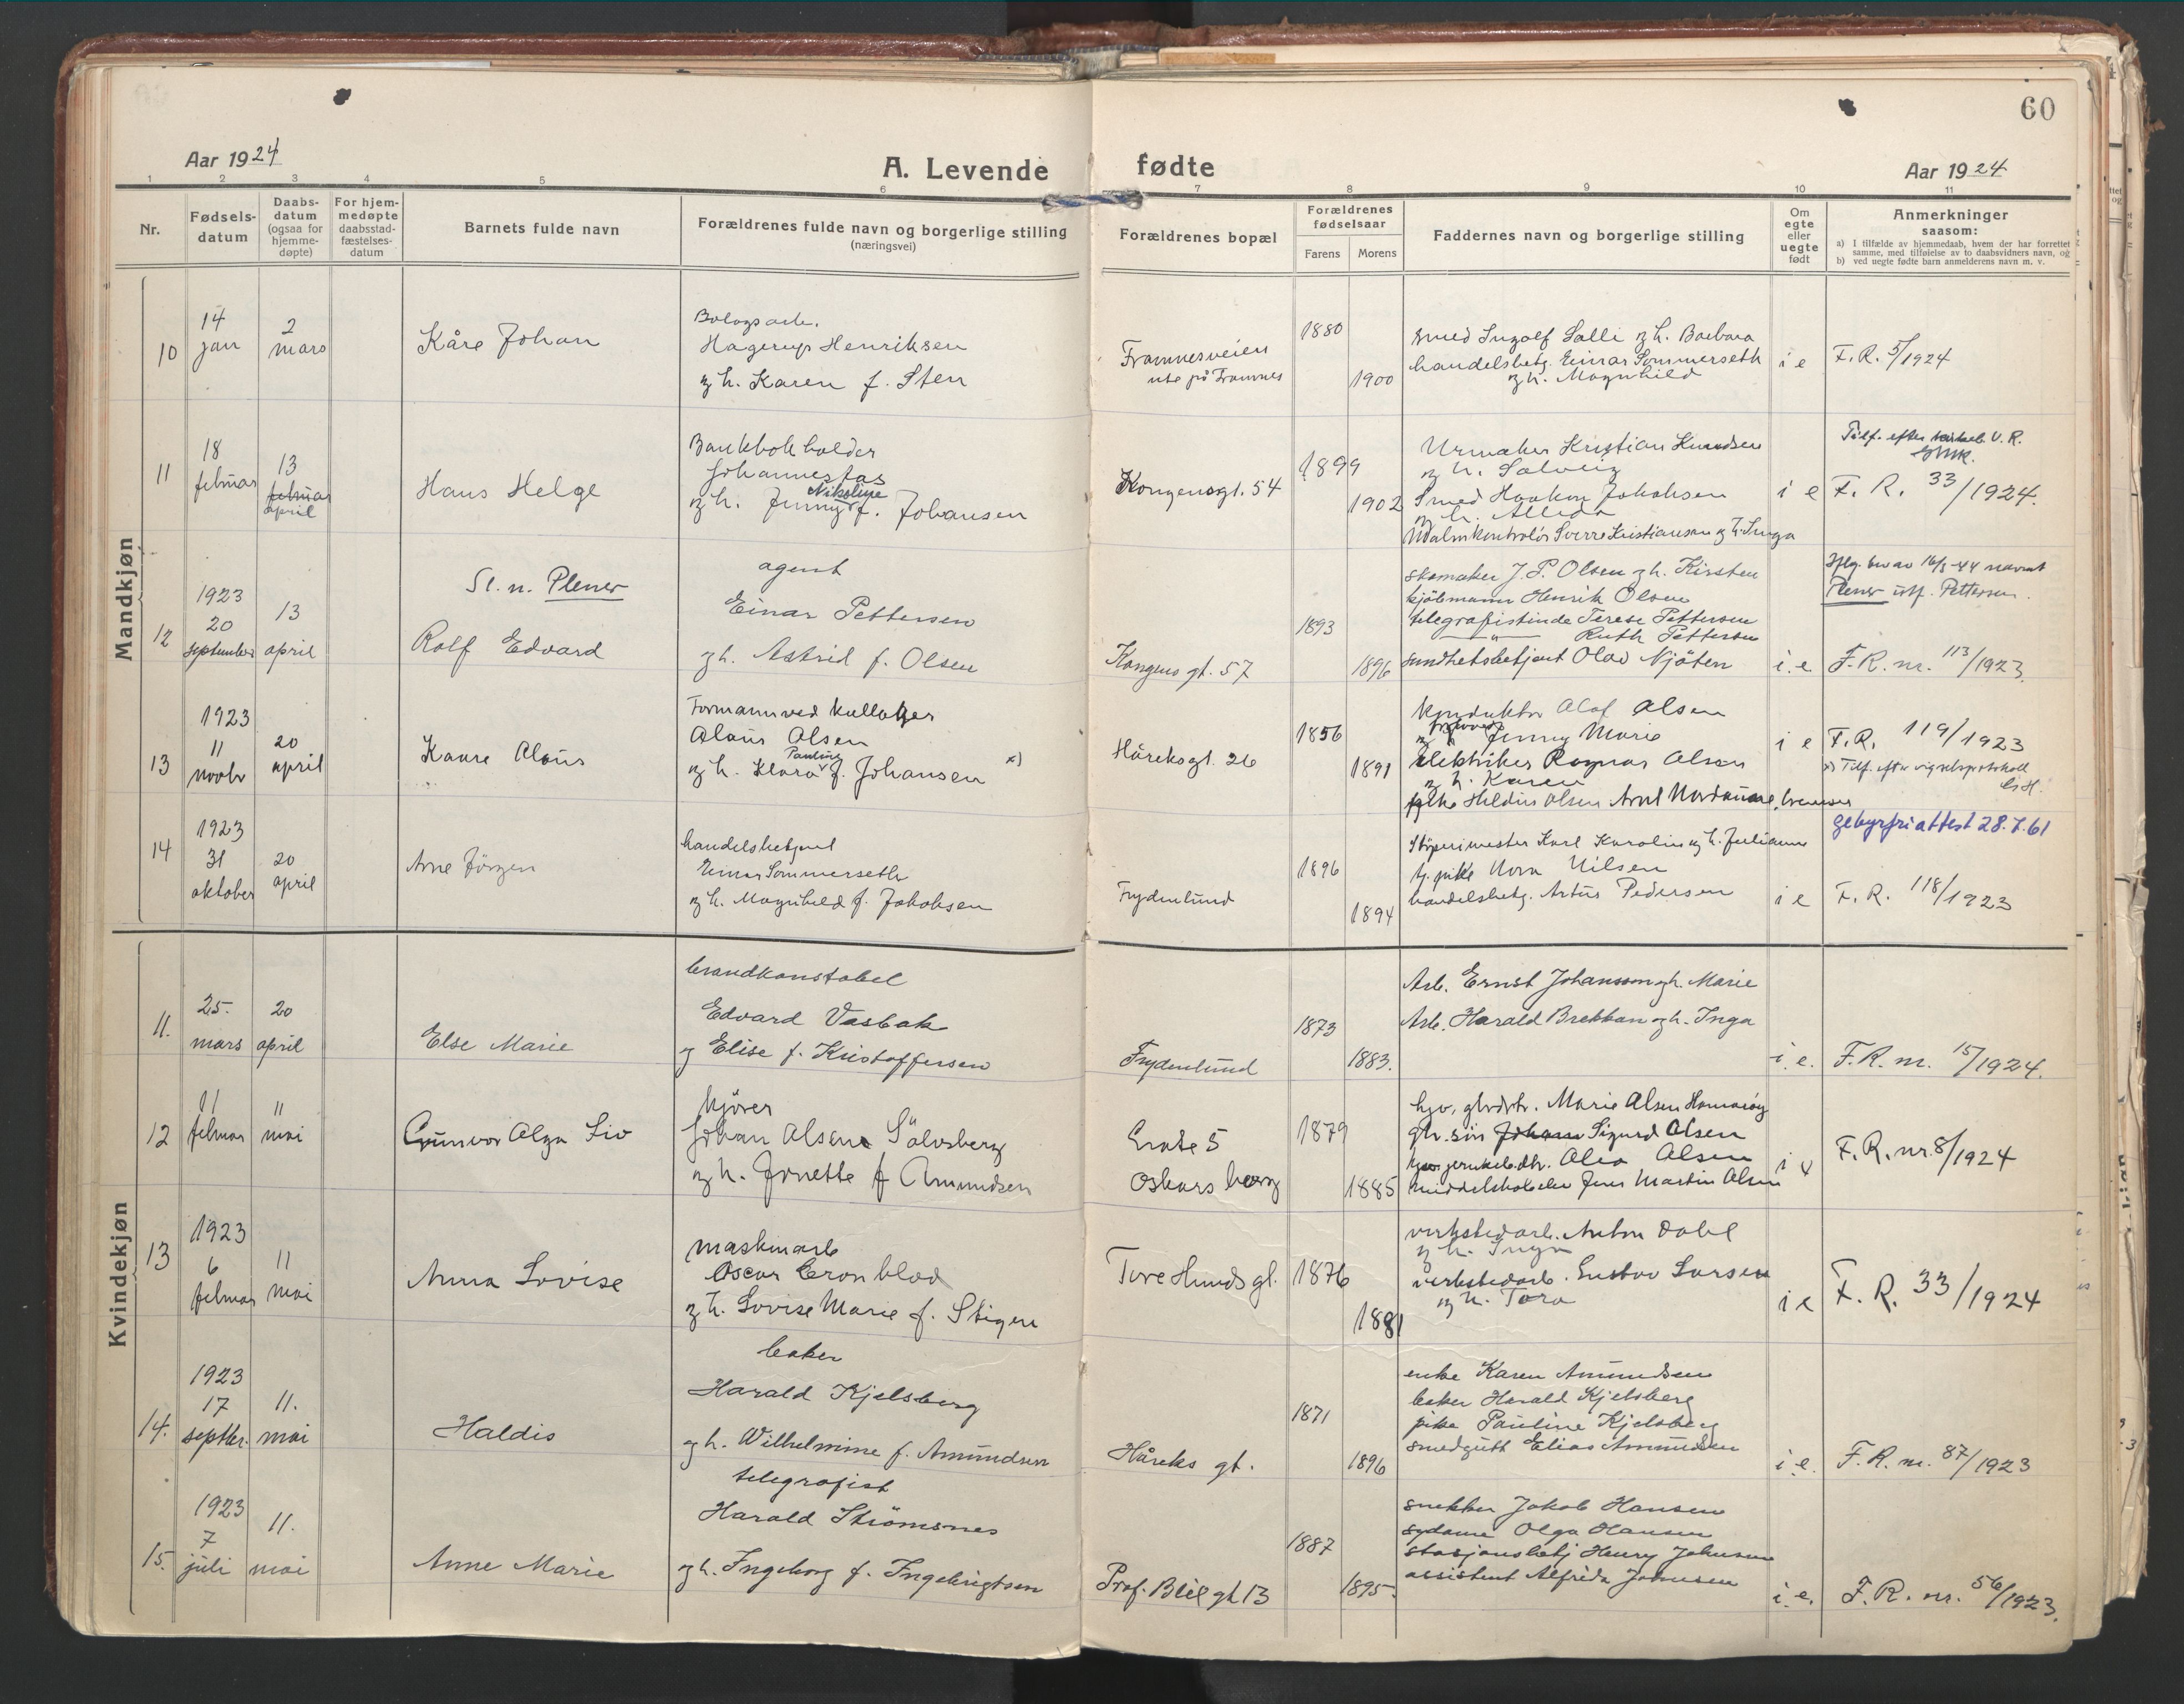 60
Aar 1924
A. Levende fødte
Aar 1924
1 2 3 4 5 6 7 8 9 10 11
Nr.
Fødsels-
datum
Daabs-
datum
(ogsaa for
hjemme-
døpte)
For hjem-
medøpte
daabsstad-
fæstelses-
datum
Barnets fulde navn
Forældrenes fulde navn og borgerlige stilling
(næringsvei)
Forældrenes bopæl
Forældrenes
fødselsaar
Farens Morens
Faddernes navn og borgerlige stilling
Om
egte
eller
uegte
født
Anmerkninger
saasom:
a) I tilfælde av hjemmedaab, hvem der har forrettet
samme, med tilføielse av to daabsvidners navn, og
b) ved uegte fødte barn anmelderens navn m. v.
Mandkjøn
10
14
jan
2
mars
Kåre Johan
Hagerup Henriksen
og h. Karen f. Sten
Framnesveien
ute på Framnes
1880
1900
smed Ingolf Salli og h. Barbara
handelsbetj. Einar Sommerseth
og h. Magnhild
i e
F. R. 5/1924
11
18
februar
13
februar
april
Hans Helge
Bankbokholder
og h. Jenny Nikoline f. Johansen
Kongensgt. 54
1899
1902
Urmaker Kristian Knudsen
og h. Solveig
Smed Haakon Jakobsen
og h.
Sverre Kristiansen og h. Inga
i e
Tilf. efter V. R.
F. R. 33/1924.
12
1923
20
september
13
april
Sl. n. Plener
Rolf Edvard
agent
Einar Pettersen
og h. Astrid f. Olsen
Kongens gt. 57
1893
1896
skomaker J. P. Olsen og h. Kirsten
kjöbmann Henrik Olsen
telegrafistinde Terese Pettersen
— " — Ruth Pettersen
sundhetsbetjent Olav Njöten
i. e
Iflg. bev av 16/3-44 navnet
Plener istf. Pettersen.
F. R. nr. 113/1923.
13
1923
11
novbr
20
april
Kaare Alaus
Formann ved kullager
Olaus Olsen
og h. Klara Pauline f. Johansen x)
Håreksgt. 26
1856
1891
Konduktör Olaf Olsen
og Jenny Marie
elektriker Ragnar Olsen
og h. Karen
Hildur Olsen
i e
F. R. 119/1923
x) Tilf. efter vigselsprotokoll
14
1923
31
oktober
20
april
Arne Jörgen
handelsbetjent
Einar Sommerseth
og h. Magnhild f. Jakobsen
Frydenlund
1896
1894
Störperimester Karl Karolius og h. Julianne
tj. pike Nora Nilsen
handelsbetj. Artur Pedersen
i e
gebyrfri attest 28.7.61
F. R. 118/1923
Kvindekjøn
11.
25.
mars
20
april
Else Marie
brandkonstabel
Edvard Vasbak
og Elise f. Kristoffersen
Frydenlund
1873
1883.
Arb. Ernst Johansson og h. Marie
Arb. Harald Brekkan og h. Inga
i. e.
F. R. nr. 15/1924.
12
11
februar
11
mai
Gunvor Alga Liv
kjörer
Johan Olsen Sölvsberg
og h. Jonette f Amundsen
Oskarsborg
1879
1885
Marie Olsen Hamaröy
gbr. sön Johann Sigurd Olsen
Olea Olsen
middelskoleelev Jens Martin Olsen
i e
F. R. nr. 8/1924
13
1923
6
februar
11
mai
Anna Lovise
maskinarb
Oscar Cronblad
og h. Lovise Marie f. Stigen
Tore Hunds gt.
1876
1881
verkstedarb. Anton Dahl
og h. Inga
verkstedarb. Gustav Larsen
og h. Tora
i e
F. R. 33/1924
14.
1923
17
septbr.
11.
mai
Haldis
baker
Harald Kjelsberg
og h. Wilhelmine f. Amundsen
Håreks gt.
1871
1896
enke Karen Amundsen
baker Harald Kjelsberg
pike Pauline Kjelsberg
smedgutt Elias Amundsen
i. e.
F. R. nr. 87/1923
15.
1923
7
juli
11.
mai
Anne Marie
telegrafist
Harald Strömsnes
og h. Ingeborg f. Ingebrigtsen
Prof. gt 13
1887
1895.
snekker Jakob Hansen
sydame Olga Hansen
stasjonsbetj Henry Johnsen
assistent Alfrida Johnsen
i. e.
F. R. nr. 56/1923.